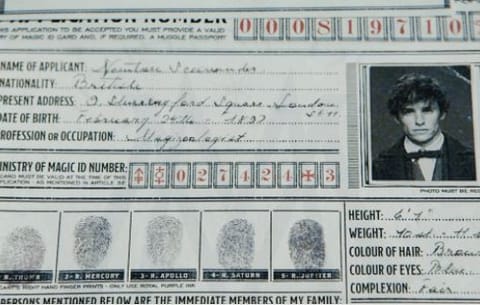 APPLICATION NUMBER 0 0 0 8 1 9 7 1 0 5
THIS APPLICATION TO BE ACCEPTED YOU MUST PROVIDE A VALID
OF MAGIC ID CARD AND, IF REQUIRED, A MUGGLE PASSPORT
NAME OF APPLICANT: Newton Scamander
NATIONALITY: British
PRESENT ADDRESS: Square - London
DATE OF BIRTH: February 24th - 1897
PROFESSION or OCCUPATION: Magizoologist
PHOTO MUST BE
MINISTRY OF MAGIC ID NUMBER: 0 2 7 4 2 4 3
CARD MUST BE VALID AT THE TIME OF THIS
APPLICATION - AS MENTIONED IN ARTICLE
R. THUMB
2-R. MERCURY
3-R. APOLLO
4-R. SATURN
5-R. JUPITER
RIGHT HAND FINGER PRINTS - ONLY USE ROYAL PURPLE INK
HEIGHT: 6'
WEIGHT:
COLOUR OF HAIR: Brown
COLOUR OF EYES: Blue
COMPLEXION: Fair
PERSONS MENTIONED BELOW ARE THE IMMEDIATE MEMBERS OF MY FAMILY: